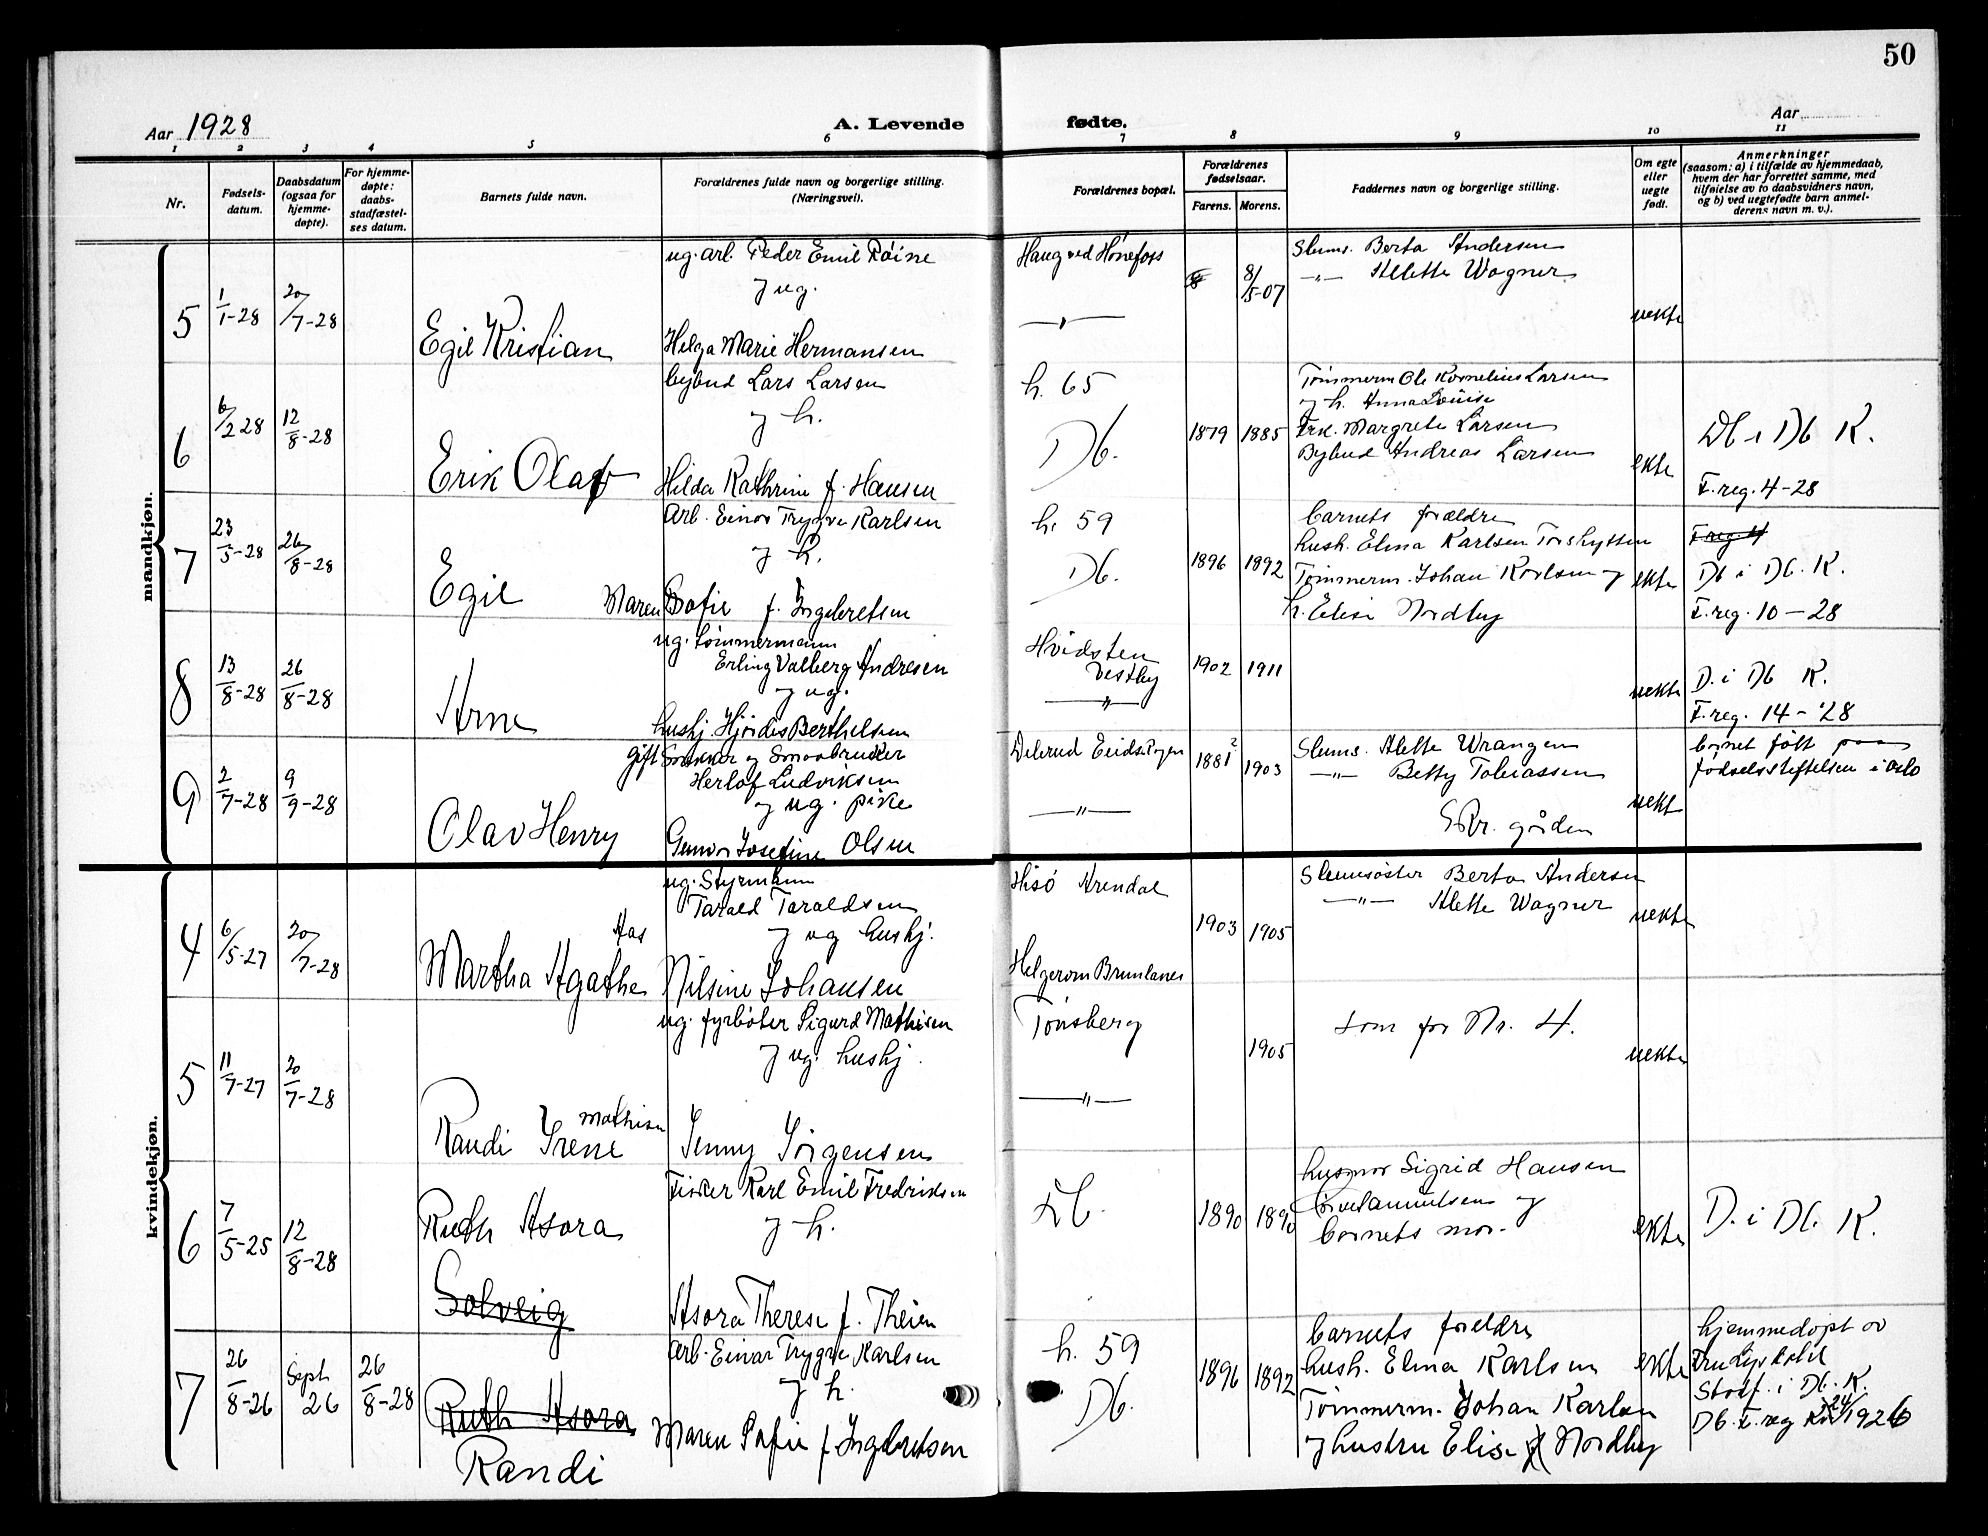 50
Aar 1928
A. Levende
fødte.
Aar
1 2 3 4 5 6 7 8 9 10 11
Nr.
Fødsels-
datum.
Daabsdatum
(ogsaa for
hjemme-
døpte).
For hjemme-
døpte:
daabs-
stadfæstel-
ses datum.
Barnets fulde navn.
Forældrenes fulde navn og borgerlige stilling.
(Næringsvei).
Forældrenes bopæl.
Forældrenes
fødselsaar.
Farens. Morens.
Faddernes navn og stilling.
Om egte
eller
uegte
født.
Anmerkninger
(saasom: a) i tilfælde av hjemmedaab,
hvem der har forrettet samme, med
tilføielse av to daabsvidners navn,
og b) ved uegtefødte barn anmel-
derens navn m. v.).
mandkjøn.
5 1/1-28 20/7-28
Egil Kristian
ug. arb. Peder Emil
og ug.
Helga Marie Hermansen
Haug ved Hønefoss
—"—
8/5-07
Slums. Berta Andersen
—"— Alette Wagner
uekte
6 6/2 28 12/8-28
Erik Olaf
bybud Lars Larsen
og h.
Hilda Kathrine f. Hansen
h. 65
Db.
1879 1885
Tømmerm Ole Kornelius Larsen
og h. Anna Lovise
Frk. Margrete Larsen
Bybud Andreas Larsen
ekte
Db i Db K.
F. reg. 4-28
7 23/5-28 26/8-28
Egil
Arb. Einar Trygve Karlsen
og h.
Maren Sofie f. Ingebretsen
h. 59
Db.
1896 1892
barnets forældre
hush. Elma Karlsen Torshytten
Tømmerm. Johan Karlsen og
h. Elise Nordby
ekte
F. reg 4
Db i Db. K.
F. reg. 10-28
8 13/8-28 26/8-28
Arne
ug. tømmermann
Erling Valberg Andresen
og ug.
hushj. Hjördis Berthelsen
Hvidsten
Vestby
—"—
1902 1911
uekte
D. i Db K.
F. reg. 14-'28
9 2/7-28 9/9-28
Olav Henry
gift Snekker og Smaabruker
Herlof Ludviksen
og ug. pike
Gunvor Josefine Olsen
Eidskogen
—"—
1881 1903
Slums. Alette Wrangen
—"— Betty Tobiassen
gården
uekte
barnet født paa
fødselsstiftelsen i Oslo
kvindekjøn.
4 6/5-27 20/7-28
Aas
Martha Agathe
ug. Styrmann
Tarald Taraldsen
og ug hushj.
Nilsine Johansen
Hisö Arendal
Helgerom Brunlanes
1903 1905
Slumsöster Berta Andersen
—"— Alette Wagner
uekte
5 11/7-27 20/7-28
Mathisen
Randi Irene
ug. fyrböter Sigurd Mathisen
og ug. hushj.
Jenny Jörgensen
Tønsberg
—"—
1905
som for Nr. 4.
uekte
6 7/5-25 12/8-28
Ruth Asora
Solveig
Fisker Karl Emil Fredriksen
og h.
Asora Therese f. Theien
Db.
1890 1890
husmor Sigrid Hansen
og
barnets mor.
ekte
D. i Db. K.
7 26/8-26 Sept 26 26/8-28
Ruth Asora
Randi
Arb. Einar Trygve Karlsen
og h.
Maren Sofie f. Ingebretsen
h. 59
Db.
1896 1892
barnets foreldre
hush. Elma Karlsen
Tømmerm. Johan Karlsen
og hustru Elise Nordby
ekte
hjemmedøpt av
Stadf. i Db. K.
Db. F. reg 24/1926